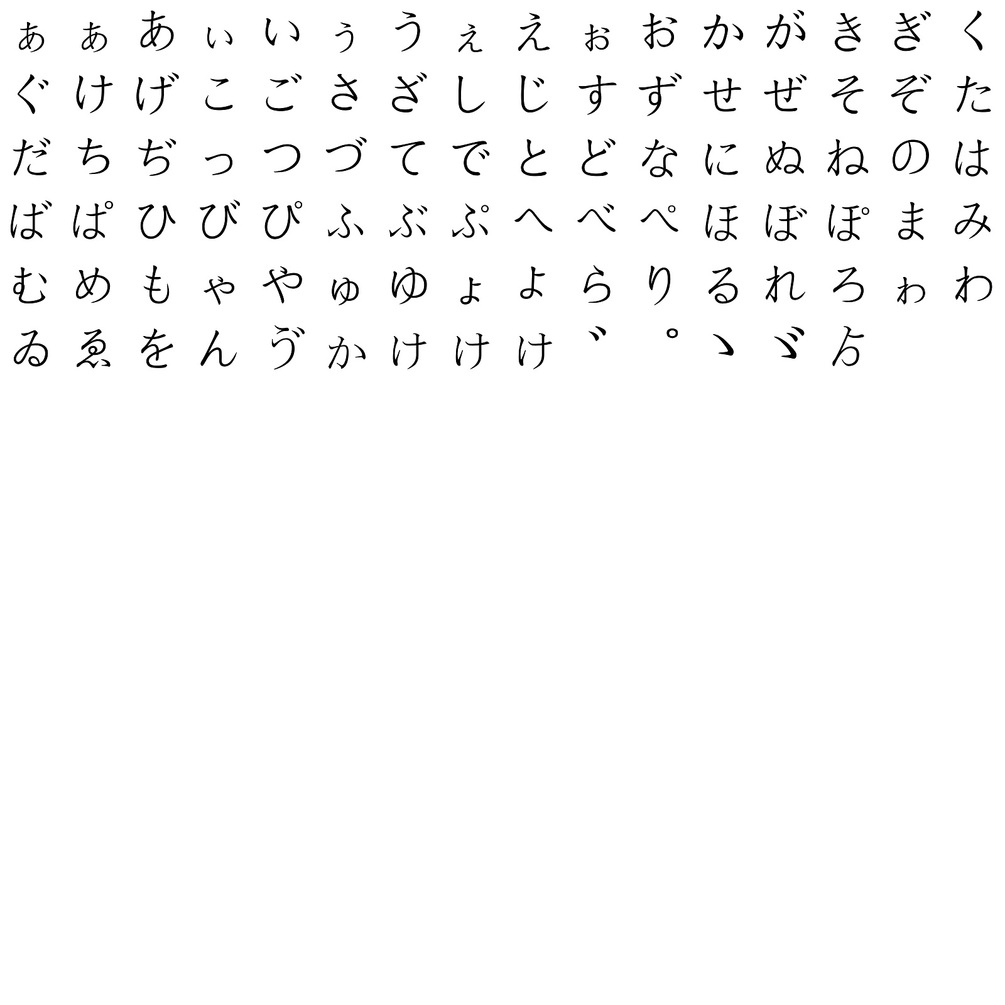 ぁぁあぃいぅうぇえぉおかがきぎく
ぐけげこごさざしじすずせぜそぞた
だちぢっつづてでとどなにぬねのは
ばぱひびぴふぶぷへべぺほぼぽまみ
むめもゃやゅゆょよらりるれろゎわ
ゐゑをんゔゕけけけ゛゜ゝゞゟ